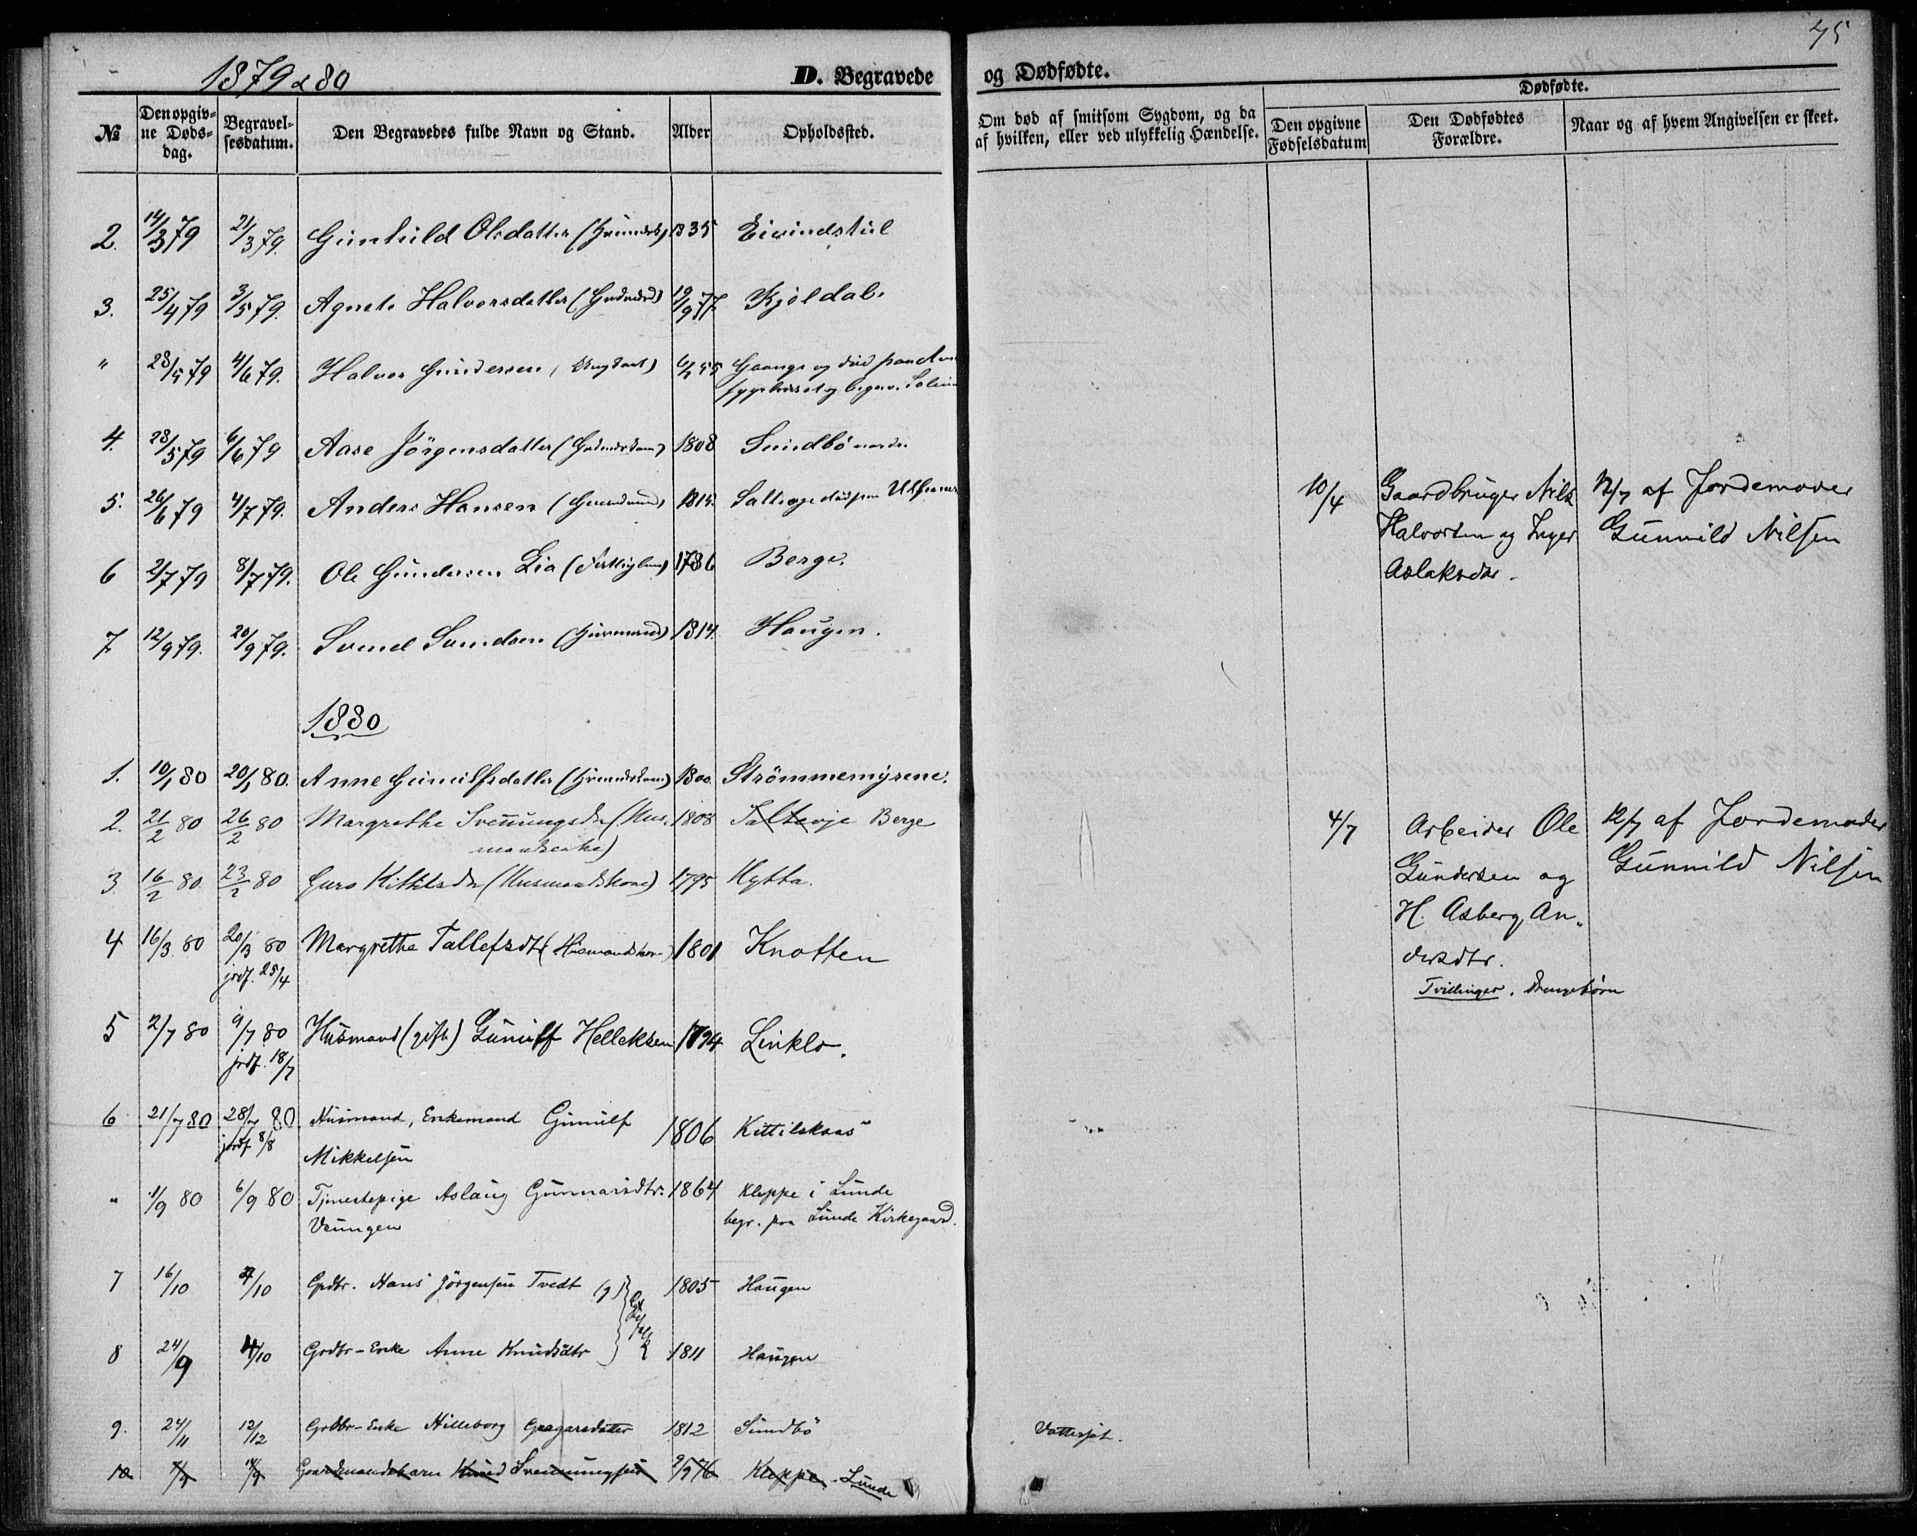 1879 & 80
D. Begravede
og Dødfødte.
75
№
Den opgivne Dødsdag.
Begravelsesdatum.
Den Begravedes fulde Navn og Stand.
Alder
Opholdssted.
Om død af smitsom Sygdom, og da af hvilken, eller ved ulykkelig Hændelse.
Dødfødte.
Den opgivne Fødselsdatum
Den Dødfødtes Forældre.
Naar og af hvem Angivelsen er skeet.
2. 14/3 79 21/3 79. Gunhild Olsdatter 1835 Eivindstul
3. 25/4 79 3/5 79. Agnete Halvorsdatter 19/9 77. Kjoldal.
" 28/5 79 4/6 79. Halvor Gundersen
4. 28/5 79 6/6 79 Aase Jörgensdatter 1808 Sundbö
5. 26/6 79 4/7 79. Anders Hansen 1815.
6 2/7 79 8/7 79. Ole Gundersen Lia 1786 Berge.
7. 12/9 79. 20/9 79. Svend Svendsen 1814. Haugen.
10/4 Gaardbruger Nils 12/7 af Jordemoder
Halvorsen og Inger Gunnild Nilsen
Aslaksdtr.
1880
1. 10/1 80 20/1 80. Anne Gunulfsdatter 1800. Strömmemyrene.
2. 21/2 80 26/2 80 Margrethe Svenungsdr (Hus- 1808 Saltevje Berge
mandsenke)
3 16/2 80 23/2 80 Guro Kittilsdr (Husmandskone) 1795 Hytta.
4 16/3 80 20/3 80 Margrethe Tallefsdtr (Husmandskone) 1801 Knotten
jrdf. 25/4
4/7 Arbeider Ole 12/7 af Jordemoder
Gundersen og Gunnild Nilsen
H. Asberg An-
dersdtr.
Tvillinger. Drengebørn
5 2/7 80 9/7 80 Husmand (gift) Gunulf Helleksen 1794 Linklo.
jrdf. 18/7
6 21/7 80 28/7 80 Husmand, Enkemand Gunulf 1806 Kittilskaas
jrdf 8/8 Mikkelsen
" 1/9 80 6/9 80 Tjenestepige Aslaug Gunnarsdtr. 1864 Kleppe i Lunde
Veungen begr. paa Lunde Kirkegaard.
7 16/10 Hans Jörgensen Tvedt (g) 1805 Haugen
8 24/9 4/10 Grdbr-Enke Anne Knudsdtr 1811 Haugen
9. 24/11 12/12 Grdbr-Enke Hilleborg Gregarsdatter 1812 Sundbö
Vattersot.
10 Gaardmandsbarn Knud Svenningsen 2/9 76 Kleppe. Lunde